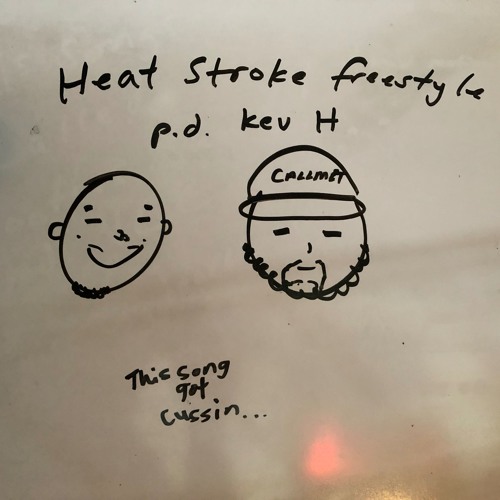 Heat Stroke freestyle
p.d. Kev H
CALLMET
This song
got
cussin...